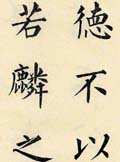 德不以
若麟之